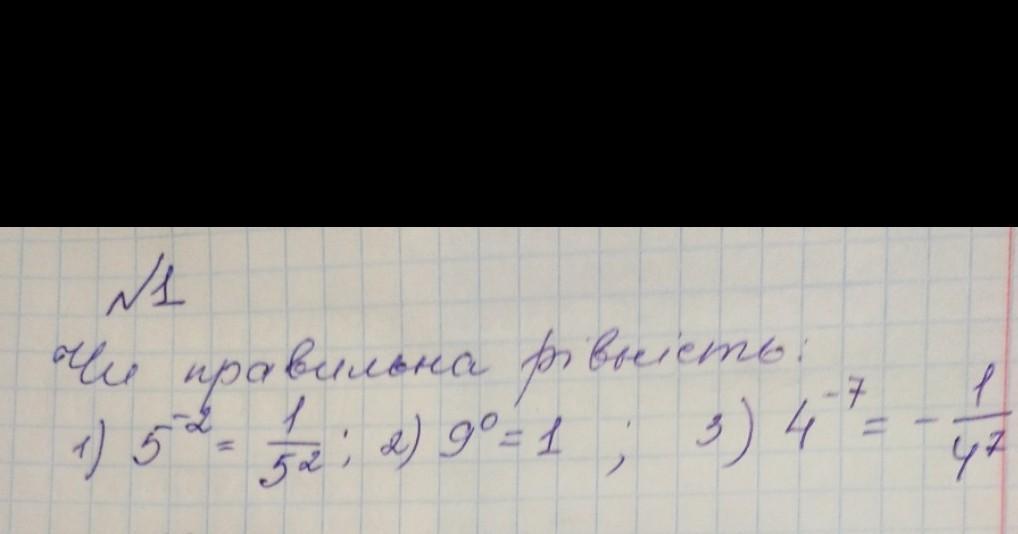 №1
Чи правильна рівність:
1) 5⁻² = 1/5²; 2) 9⁰ = 1 ; 3) 4⁻⁷ = - 1/4⁷